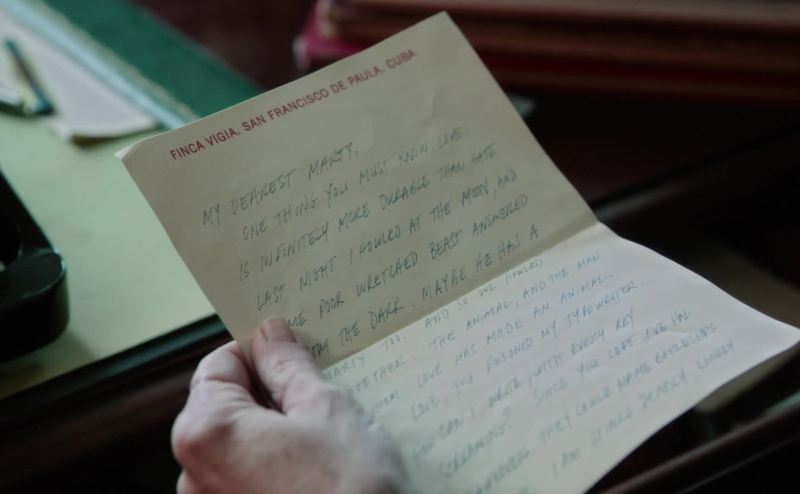 FINCA VIGIA. SAN FRANCISCO DE PAULA. CUBA
MY DEAREST MARTY,
ONE THING YOU MUST KNOW, LOVE
IS INFINITELY MORE DURABLE THAN HATE
LAST NIGHT I HOWLED AT THE MOON, AND
ME POOR WRETCHED BEAST ANSWERED
THE DARK. MAYBE HE HAS A
MARTY TOO. AND SO WE HOWLED
TOGETHER. THE ANIMAL, AND THE MAN
LOVE HAS MADE AN ANIMAL
LOVE, YOU POISONED MY TYPEWRITER.
HOW CAN I WRITE, WITH EVERY KEY
SCREAMING. SINCE YOU LEFT I'VE HAD
THEY COULD NAME BATTLESHIPS
I AM STINKO DEADLY LONELY